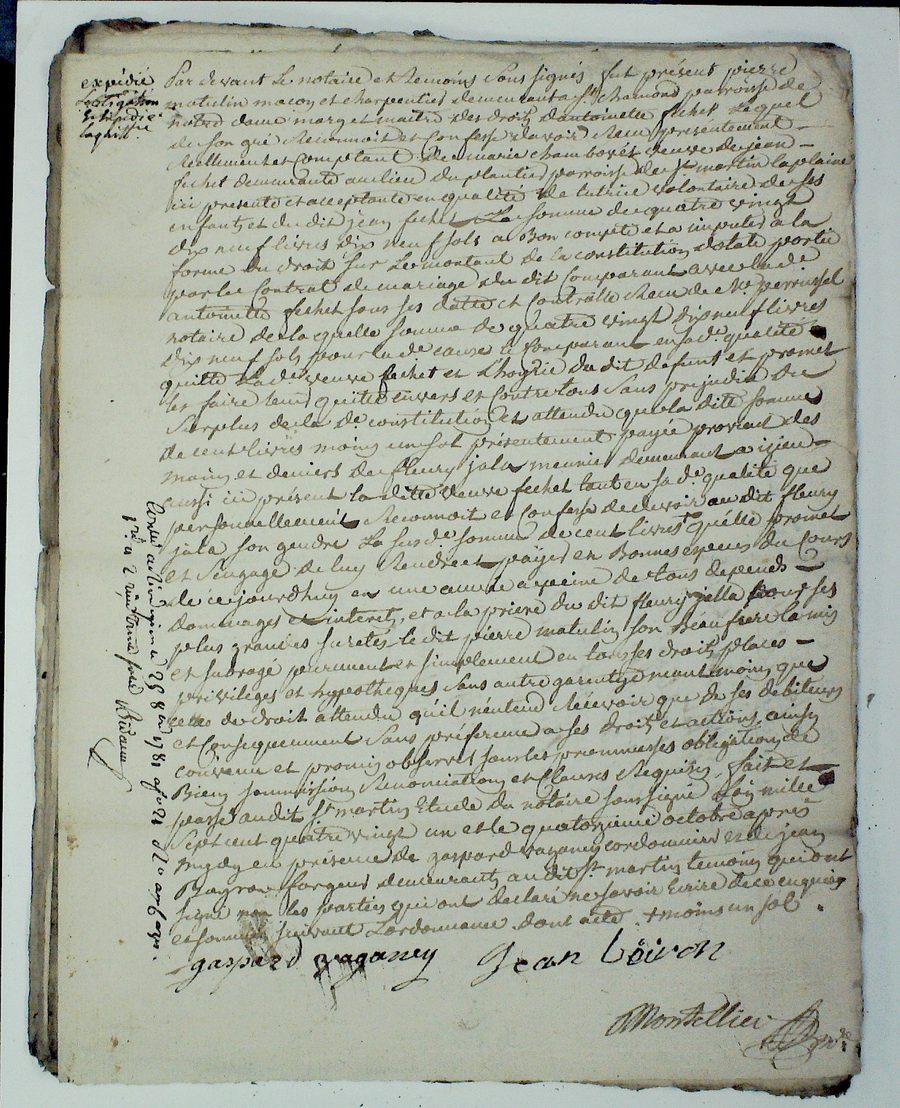 expédié
l'obligation
Par devant Le notaire et temoins Sous signés fut présent pierre
matulin maçon et charpentier demeurant a St chamond parroisse de
notre dame mary et maitre des droits d'antoinette fechet Lequel
de son gré Reconnoit et Confesse d'avoir Reçu presentement
Reellement et Comptant de marie chambovét veuve de jean
fechet demeurante au lieu du plantier parroisse de St martin laplaine
ici presente et acceptante en qualité de tutrice volontaire de ses
enfants et du dit jean fechet La somme de quatre vingt
dix neuf livres dix neuf sols a Bon compte et a imputer a la
forme du droit sur Le montant de la constitution dotale portée
par le Contrat de mariage du dit Comparant avec lade
antoinette fechet sous ses datte et Controlle Reçu de Me
notaire de la quelle somme de quatre vingt dix neuf livres
dix neuf sols pour lade cause le Comparant en sade qualité
quitte Lade veuve fechet et L'hoyrie du dit defunt et promet
les faire tenir quitte envers et Contre tous Sans préjudice du
Surplus de la de constitution et attendu que la dite somme
de cent livres moins un sol présentement payée provient des
mains et deniers de fleury jala meunier demeurant a
aussi ici présent la ditte veuve fechet tant en sade qualité que
personnellement Reconnoit et Confesse de devoir au dit fleury
jala son gendre La susde somme de cent livres+ qu'elle promet
et s'engage de luy Rendre et payer en Bonnes especes du Cours
de ce jourdhuy en une année a peine de tous depends
dommages et interets, et a la priere du dit fleury jalla pour ses
plus grandes suretés le dit pierre matulin son Beaufrere la mis
et subrogé purement et simplement en tous ses droits places
privilèges et hypotheques Sans autre garentye maintenuë que
celle de droit attendu qu'il n'entend Recevoir que de ses debiteurs
et Consequemment Sans préference a ses droits et actions, ainsy
convenu et promis observer sous les promesses obligations de
Biens soummissions Renonciations et Clauses Requises, fait et
passé audit St martin Etude du notaire soussigné L'an mille
Sept cent quatre vingt un et le quatorzieme octobre après
midy en présence de gaspard vaganey cordonnier et de jean
forgeur demeurants audit St martin temoins qui ont
signé non les parties qui ont declaré ne savoir Ecrire de ce enquises
et sommées suivant L'ordonnance dont acte + moins un sol
gaspard vaganey Jean
Montellier